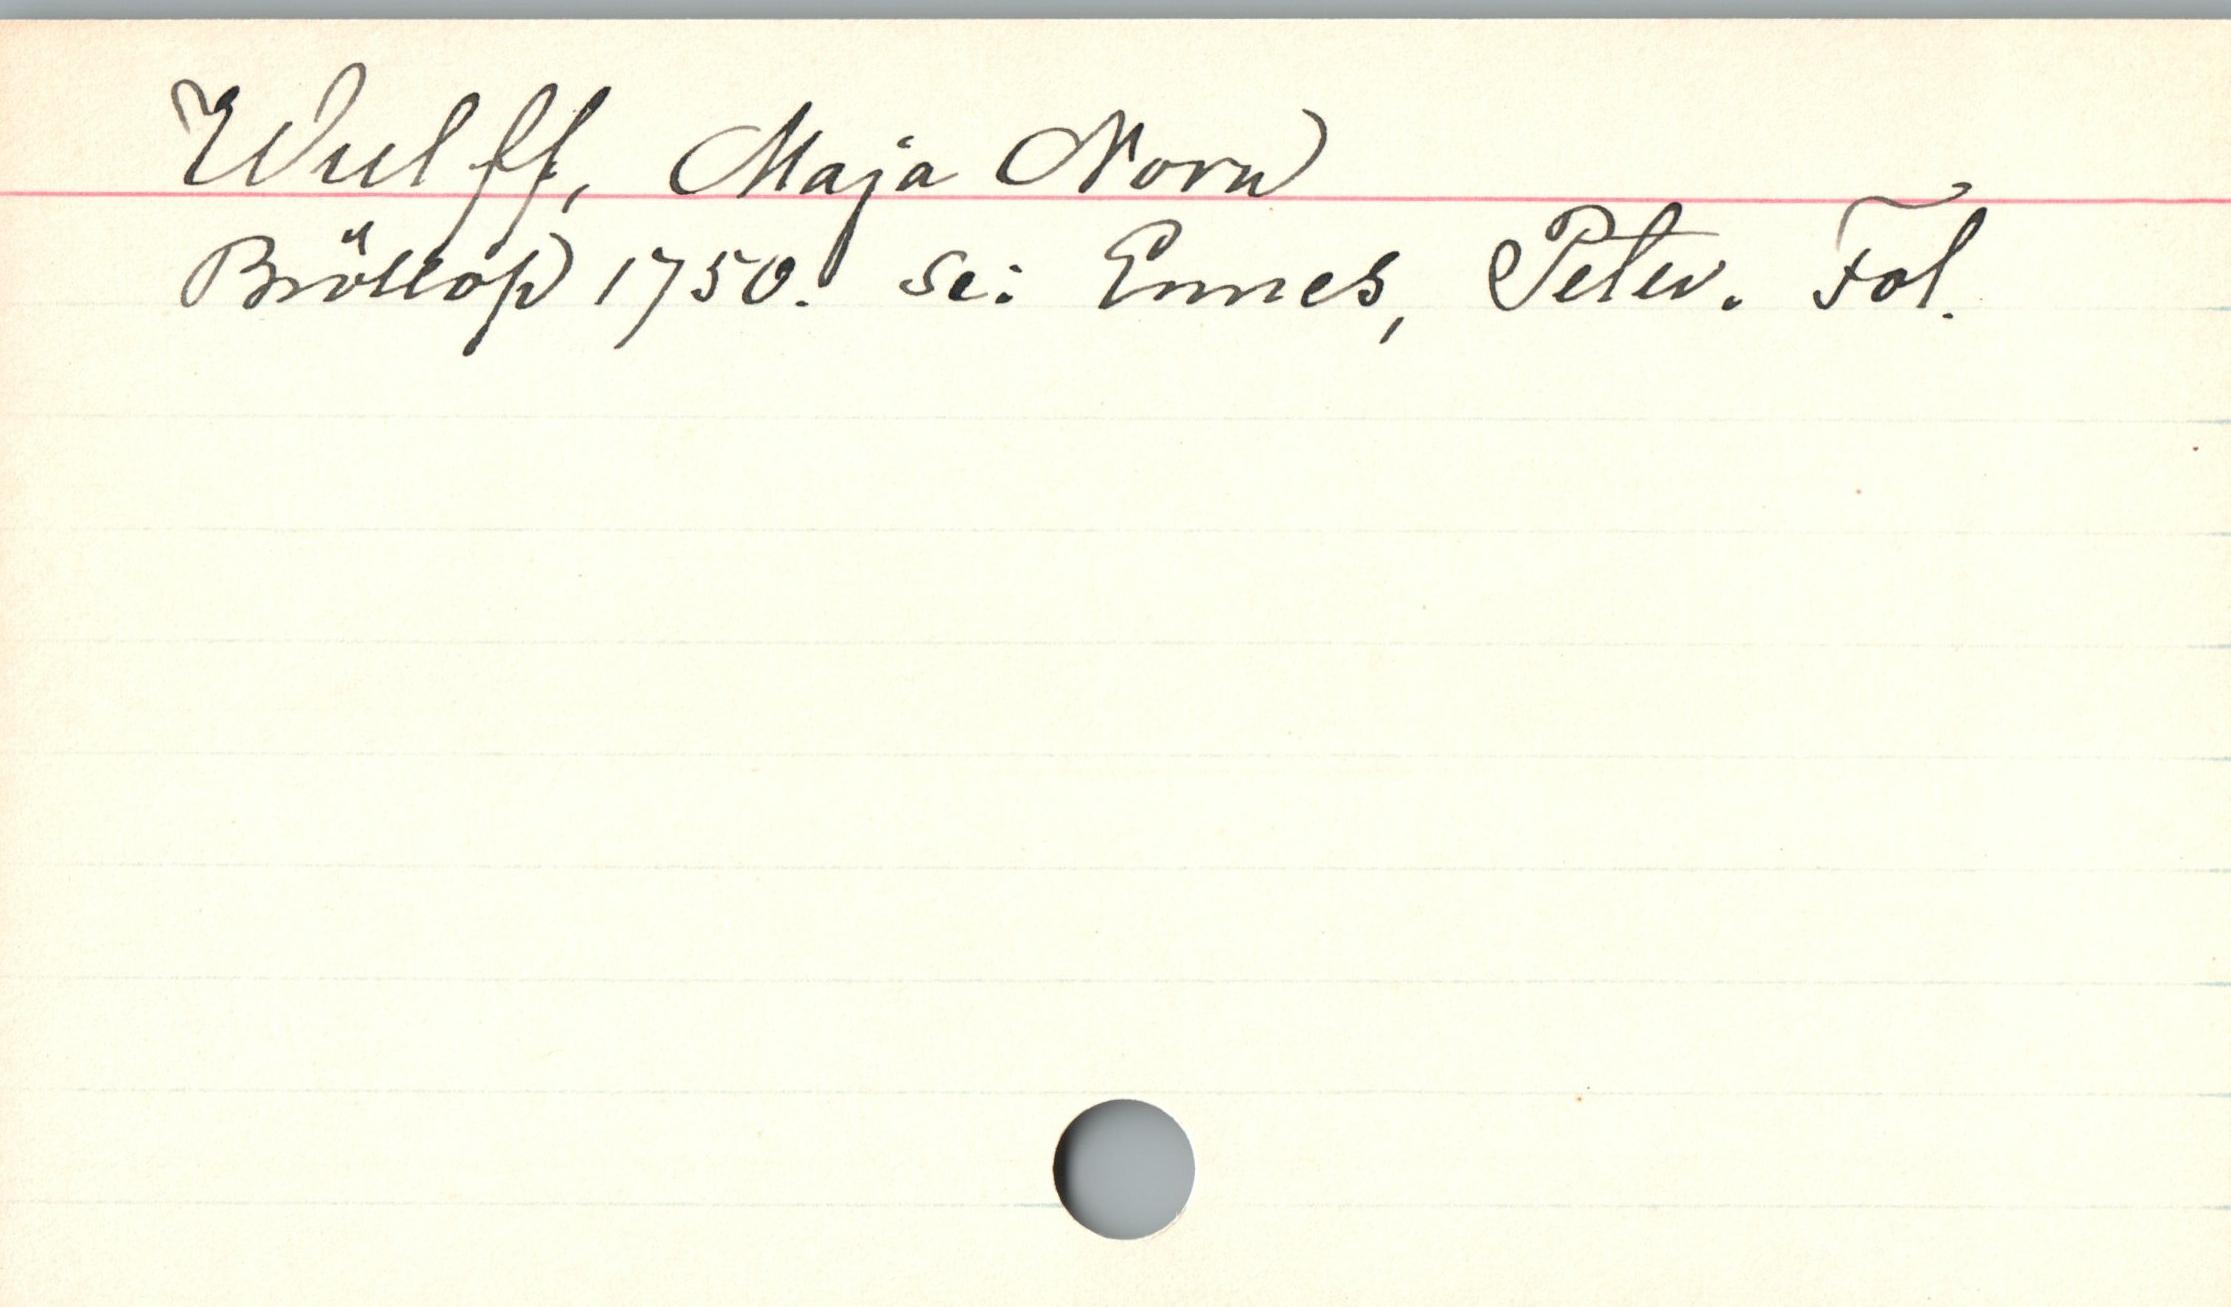 Wulff, Maja Norn
Bröllop 1750. Se: Ennes, Peter. Fol.